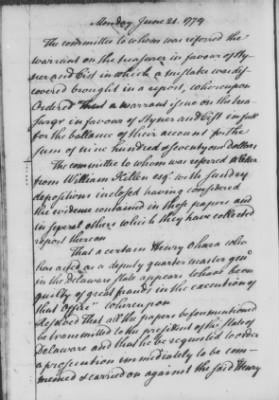 Monday June 21. 1779
The committee to whom was referred the
warrant on the treasurer in favour of Sty-
ner and Cist in which a mistake was dis-
covered brought in a report, whereupon
Ordered That a warrant issue on the trea-
surer in favour of Styner and Cist in full
for the ballance of their account for the
sum of nine hundred & seventy six dollars
The committee to whom was referred a letter
from William Killen esqr. with sundry
depositions inclosed having considered
the evidence contained in those papers and
in several others which they have collected
report thereon
That a certain Henry Ohara who
has acted as a deputy quarter master genl
in the Delaware state appears to have been
guilty of great frauds in the execution of
that office. Whereupon
Resolved That all the papers beforementioned
be transmitted to the president of the state of
Delaware and that he be requested to order
a prosecution immediately to be com-
menced & carried on against the said Henry